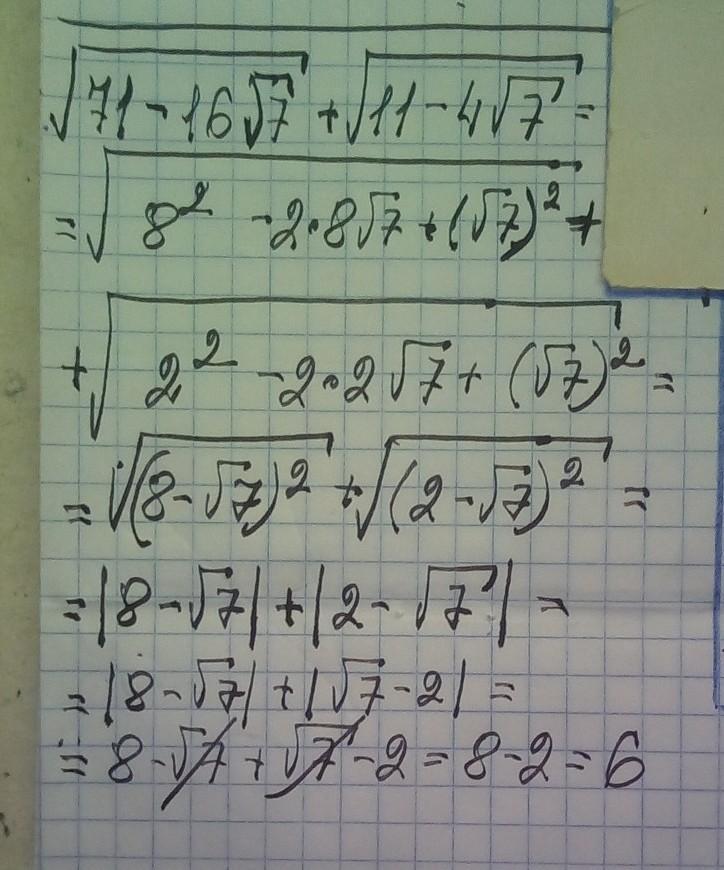 √(71-16√7) + √(11-4√7) =
= √(8² - 2·8√7 + (√7)²) +
+ √(2² - 2·2√7 + (√7)²) =
= √((8-√7)²) + √((2-√7)²) =
= |8-√7| + |2-√7| =
= |8-√7| + |√7-2| =
= 8-√7 + √7-2 = 8-2 = 6